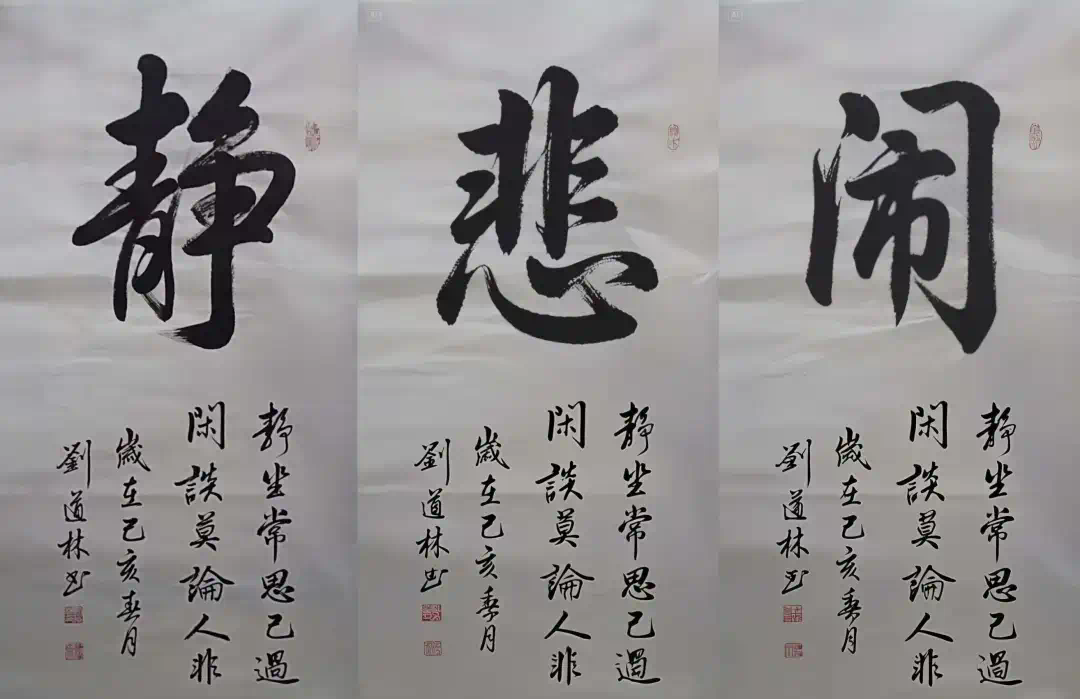 静
静坐常思己過
閑談莫論人非
歲在己亥春月
劉道林书
悲
静坐常思己過
閑談莫論人非
歲在己亥春月
劉道林书
闹
静坐常思己過
閑談莫論人非
歲在己亥春月
劉道林书